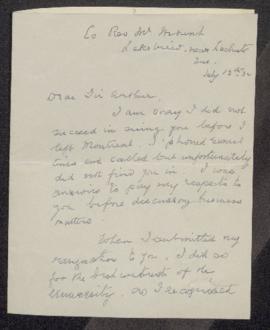 c/o Rev. Mr
Lakeview, near Lachute
Que.
July 13th 32
Dear Sir Arthur,
I am sorry I did not
succeed in seeing you before I
left Montreal. I 'phoned several
times and called but unfortunately
did not find you in. I was
anxious to pay my respects to
you before discussing business
matters.
When I submitted my
resignation to you, I did so
for the best interests of the
University, as I recognized